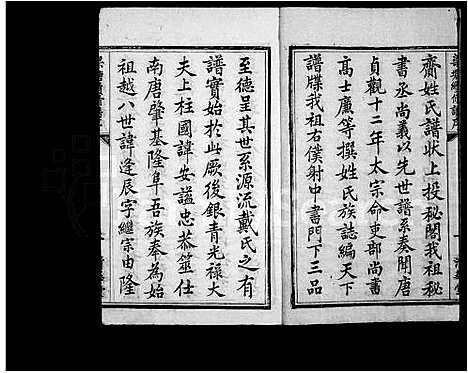 齋姓氏譜狀上投秘閣我祖秘
書丞尚義以先世譜系奏聞唐
貞觀十二年太宗命吏部尚書
高士廉等撰姓氏族誌編天下
譜牒我祖右僕射中書門下三品
至德呈其世系源流戴氏之有
譜實始於此厥後銀青光祿大
夫上柱國諱安諡忠恭筮仕
南唐肇基隆阜吾族奉為始
祖越八世諱逢辰字繼宗由隆